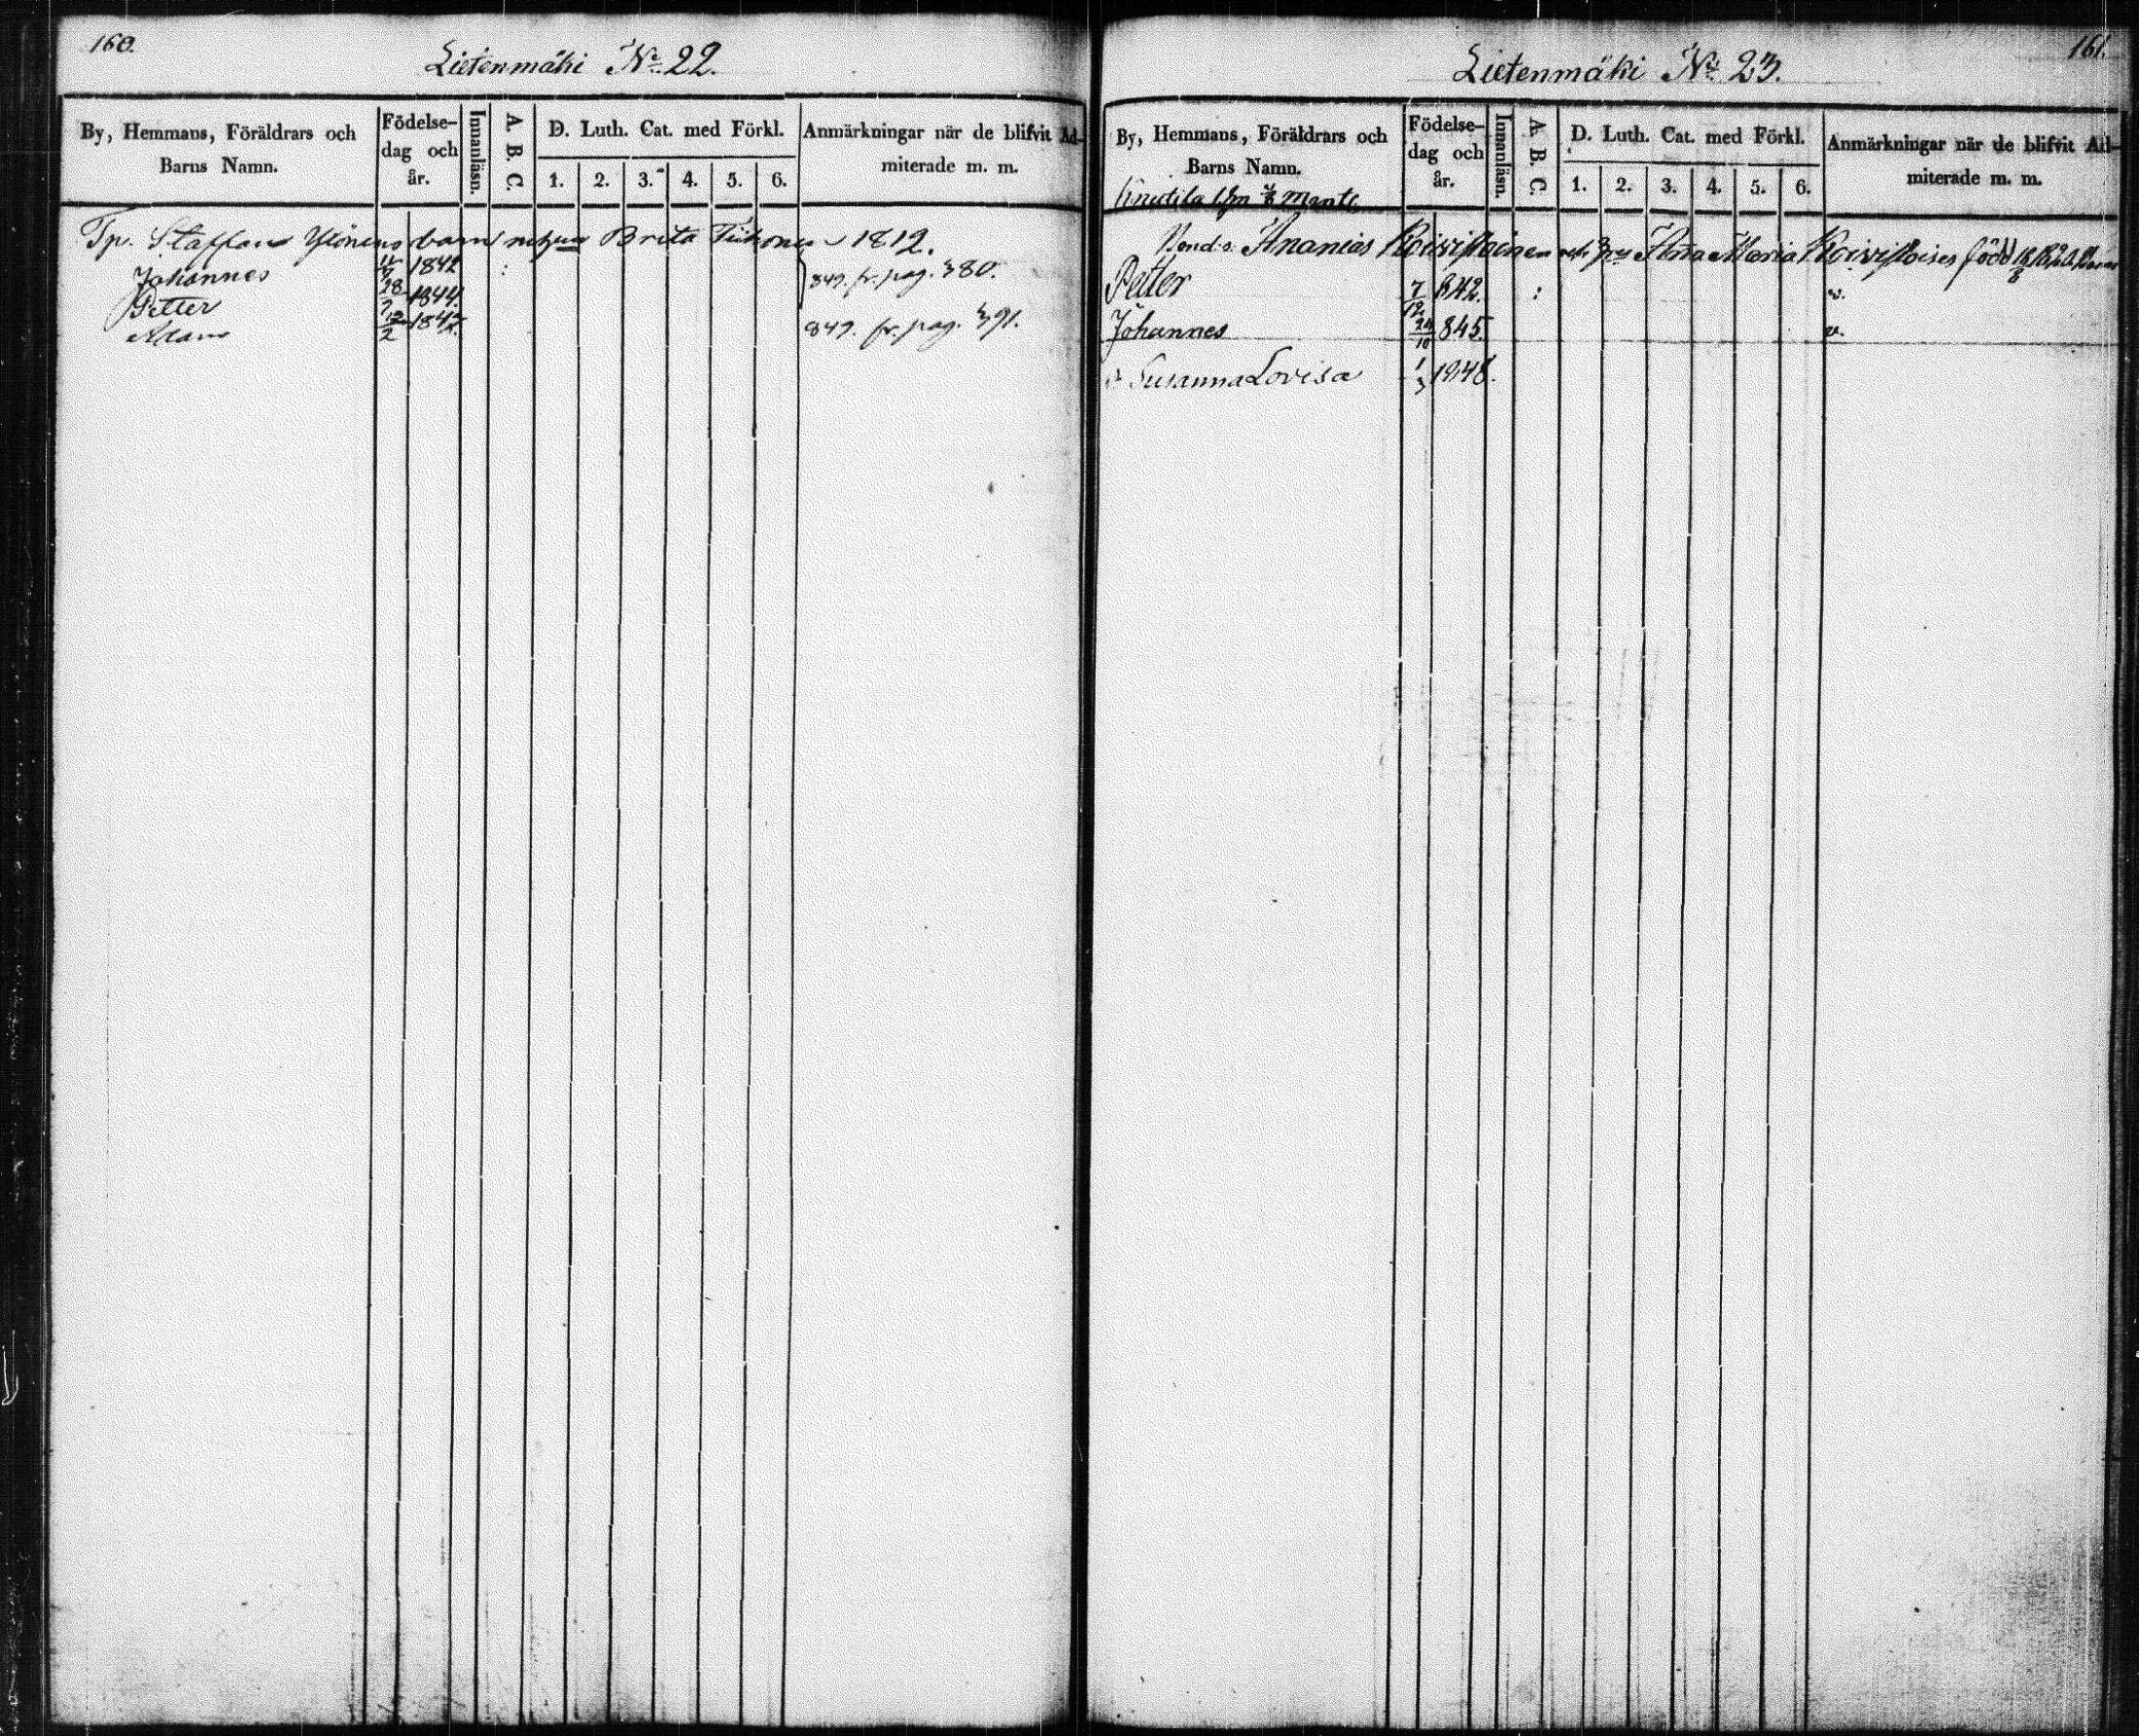 160.
Lietenmäki No. 22.
By, Hemmans, Föräldrars och Barns Namn.
Födelse-dag och år.
Innanläsn.
A. B. C.
D. Luth. Cat. med Förkl.
1. 2. 3. 4. 5. 6.
Anmärkningar när de blifvit Ad-
miterade m. m.
Tp. Staffan Ylönens barn Brita 1812.
Johannes 1842 :
849. fr. pag. 380.
Petter 28/7 1844.
Adam 12/2 184
849. fr. pag. 391.
161.
Lietenmäki No. 23.
By, Hemmans, Föräldrars och Barns Namn.
Födelse-dag och år.
Innanläsn.
A. B. C.
D. Luth. Cat. med Förkl.
1. 2. 3. 4. 5. 6.
Anmärkningar när de blifvit Ad-
miterade m. m.
Knutila
Ananias Koivistoinen Anna Maria Koivistoises född
Petter 7/12 842. : v.
Johannes 24/10 845. v.
Susanna Lovisa 1/3 1848.